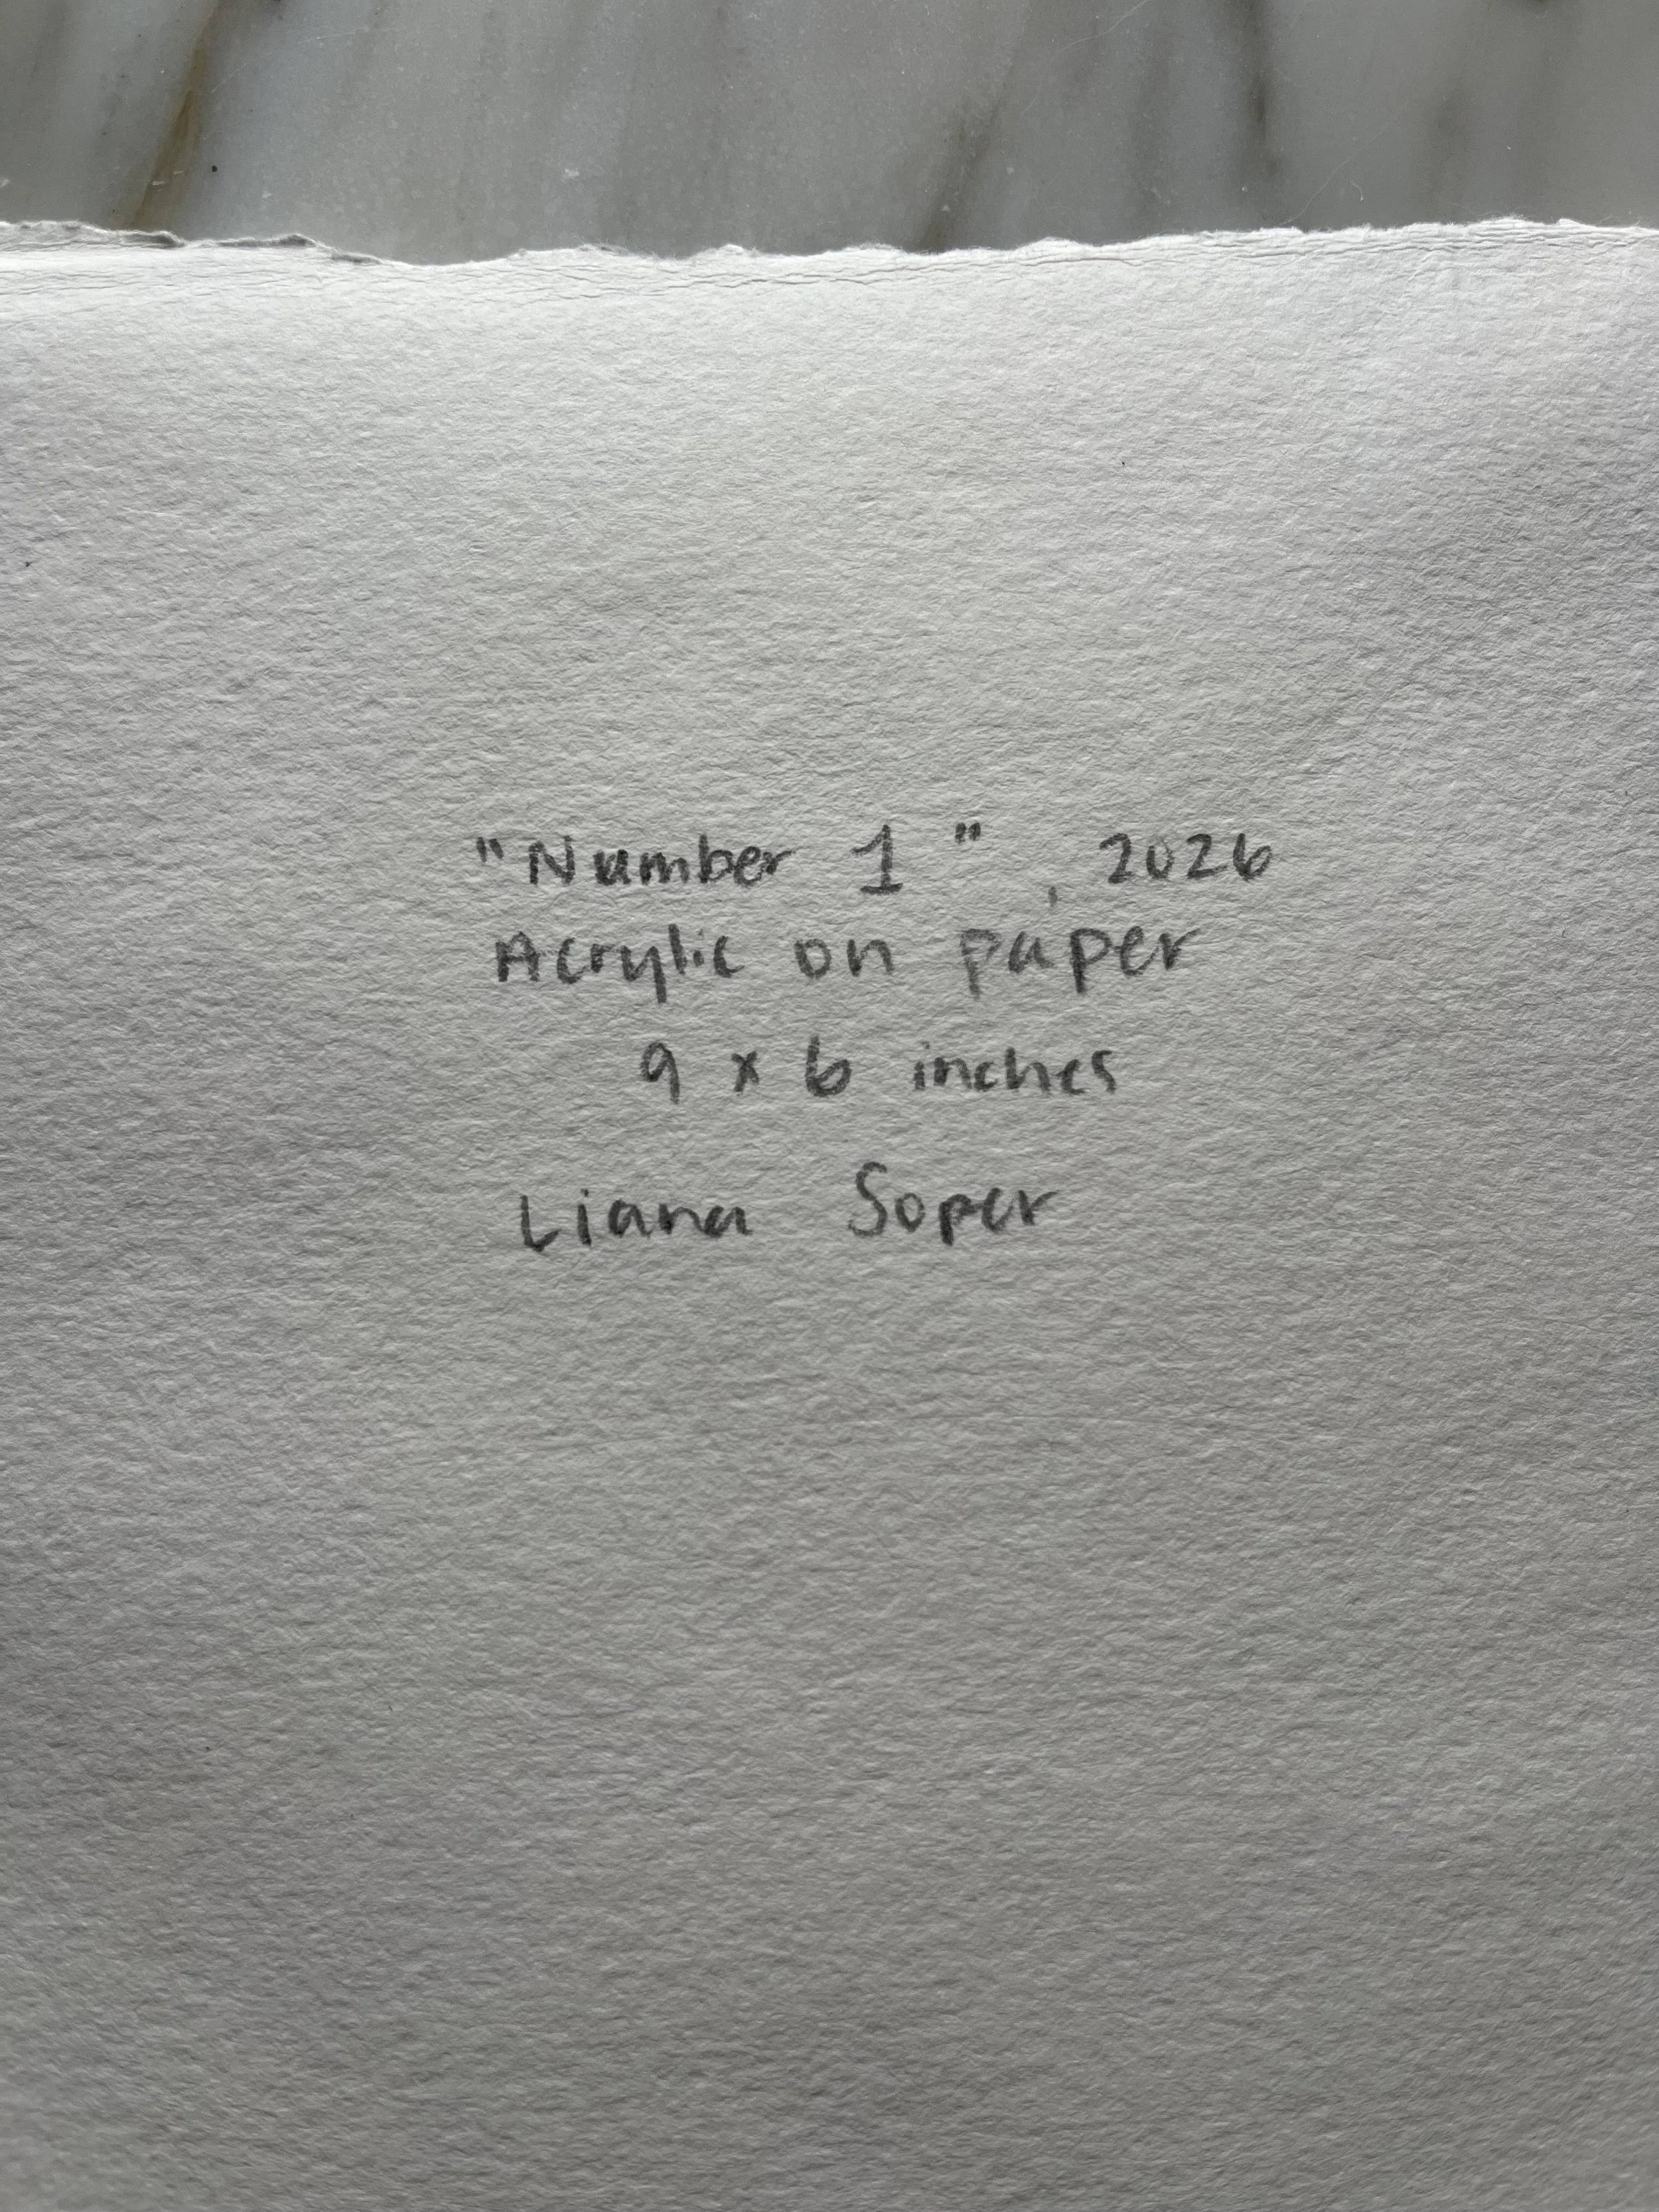 "Number 1", 2026
Acrylic on paper
9 x 6 inches
Liana Soper